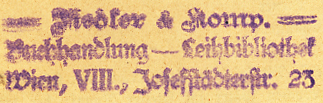 Medker & Komp.
Buchhandlung — Leihbibliothek
Wien, VIII., Josefstädterstr. 23